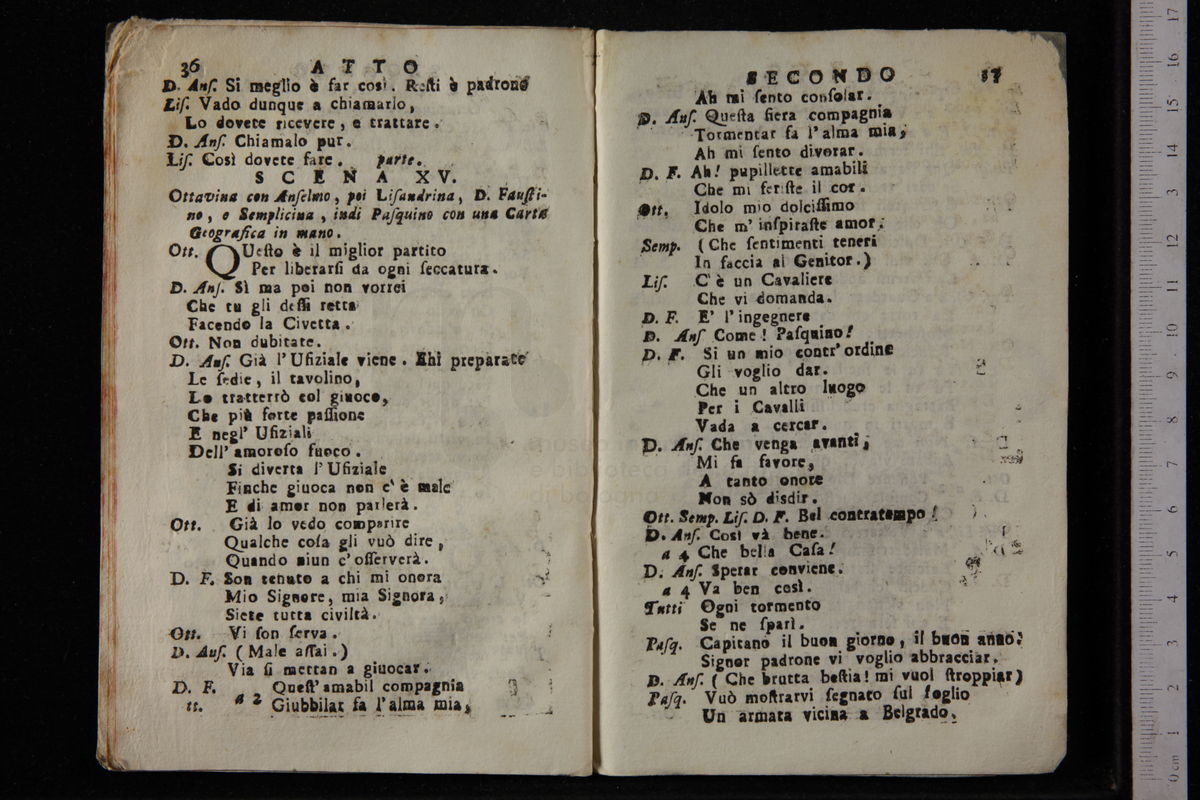 36 ATTO
D. Anſ. Si meglio è far così. Reſti è padrone
Liſ. Vado dunque a chiamarlo,
Lo dovete ricevere, e trattare.
D. Anſ. Chiamalo pur.
Liſ. Così dovete fare. parte.
SCENA XV.
Ottavina con Anſelmo, poi Liſandrina, D. Fauſti-
no, e Semplicina, indi Paſquino con una Carta
Geografica in mano.
Ott. QUeſto è il miglior partito
Per liberarſi da ogni ſeccatura.
D. Anſ. Sì ma poi non vorrei
Che tu gli deſſi retta
Facendo la Civetta.
Ott. Non dubitate.
D. Anſ. Già l'Ufiziale viene. Ehi preparate
Le ſedie, il tavolino,
Lo tratterrò col giuoco,
Che più forte paſſione
E negl' Ufiziali
Dell' amoroſo fuoco.
Si diverta l'Ufiziale
Finche giuoca non c'è male
E di amor non parlerà.
Ott. Già lo vedo comparire
Qualche coſa gli vuò dire,
Quando niun c'oſſerverà.
D. F. Son tenuto a chi mi onora
Mio Signore, mia Signora,
Siete tutta civiltà.
Ott. Vi ſon ſerva.
D. Anſ. (Male aſſai.)
Via ſi mettan a giuocar.
D. F. Queſt' amabil compagnia
tt. a 2 Giubbilar fa l'alma mia,
SECONDO 37
Ah mi ſento conſolar.
D. Anſ. Queſta fiera compagnia
Tormentar fa l'alma mia,
Ah mi ſento divorar.
D. F. Ah! pupillette amabili
Che mi feriſte il cor.
Ott. Idolo mio dolciſſimo
Che m' inſpiraſte amor.
Semp. (Che ſentimenti teneri
In faccia al Genitor.)
Liſ. C'è un Cavaliere
Che vi domanda.
D. F. E' l'ingegnere
D. Anſ Come! Paſquino!
D. F. Si un mio contr'ordine
Gli voglio dar.
Che un altro luogo
Per i Cavalli
Vada a cercar.
D. Anſ. Che venga avanti,
Mi fa favore,
A tanto onore
Non sò disdir.
Ott. Semp. Liſ. D. F. Bel contratempo!
D. Anſ. Così và bene.
a 4 Che bella Caſa!
D. Anſ. Sperar conviene.
a 4 Va ben così.
Tutti Ogni tormento
Se ne ſparì.
Paſq. Capitano il buon giorno, il buon anno.
Signor padrone vi voglio abbracciar.
D. Anſ. (Che brutta beſtia! mi vuol ſtroppiar)
Paſq. Vuò moſtrarvi ſegnato ſul foglio
Un armata vicina a Belgrado,